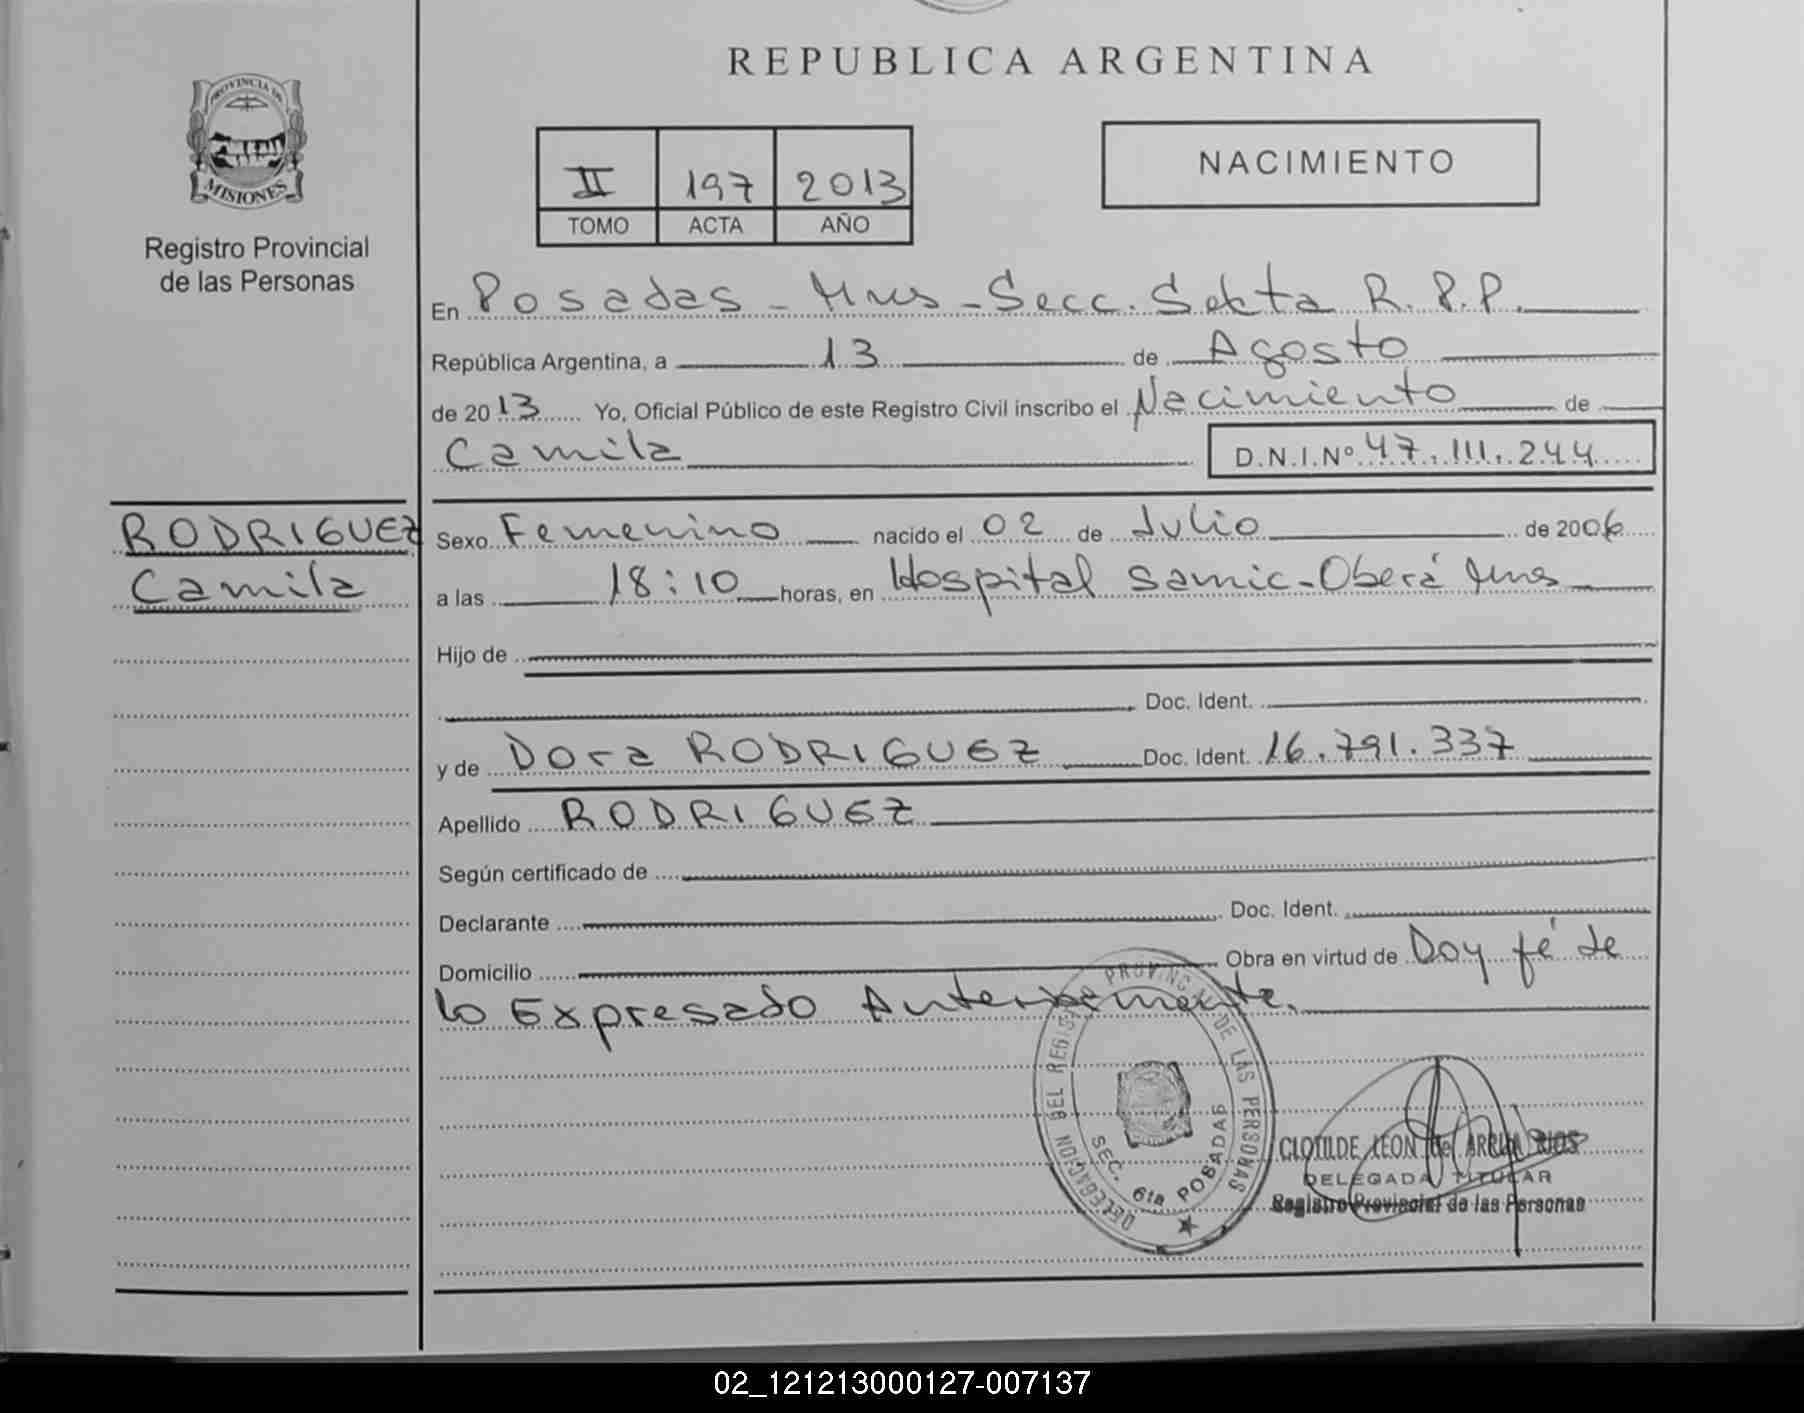 REPUBLICA ARGENTINA
PROVINCIA DE
MISIONES
Registro Provincial
de las Personas
II 197 2013
TOMO ACTA AÑO
NACIMIENTO
En Posadas - Mnes - Secc. Sexta R.P.P.
República Argentina, a 13 de Agosto
de 2013 Yo, Oficial Público de este Registro Civil inscribo el Nacimiento de
Camila D.N.I.Nº 47.111.244
RODRIGUEZ
Camila
Sexo Femenino nacido el 02 de Julio de 2006
a las 18:10 horas, en Hospital Samic - Oberá Mnes
Hijo de
Doc. Ident.
y de Dora RODRIGUEZ Doc. Ident. 16.791.337
Apellido RODRIGUEZ
Según certificado de
Declarante Doc. Ident.
Domicilio Obra en virtud de Doy fé de
lo Expresado Anteriormente.
DELEGACION DEL REGISTRO PROVINCIAL DE LAS PERSONAS
SEC. 6ta POSADAS
CLOTILDE LEON de
DELEGADA TITULAR
Registro Provincial de las Personas
02_121213000127-007137